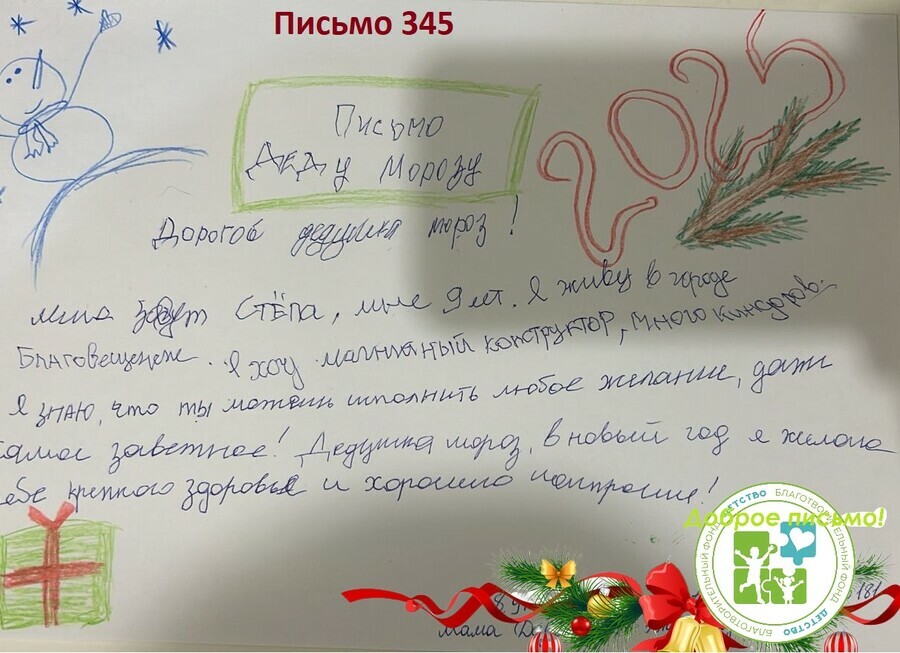 Письмо 345
Письмо
Деду Морозу
2025
Дорогоб дедушка мороз!
меня зовут Стёпа, мне 9 лет. Я живу в городе
Благовещенске. Я хочу магнитный конструктор, много киндоров.
Я знаю, что ты можешь исполнить любое желание, даже
самое заветное! Дедушка мороз, в новый год я желаю
тебе крепкого здоровья и хорошего настроения!
Доброе письмо!
БЛАГОТВОРИТЕЛЬНЫЙ ФОНД ДЕТСТВО
БЛАГОТВОРИТЕЛЬНЫЙ ФОНД ДЕТСТВО
181
мама